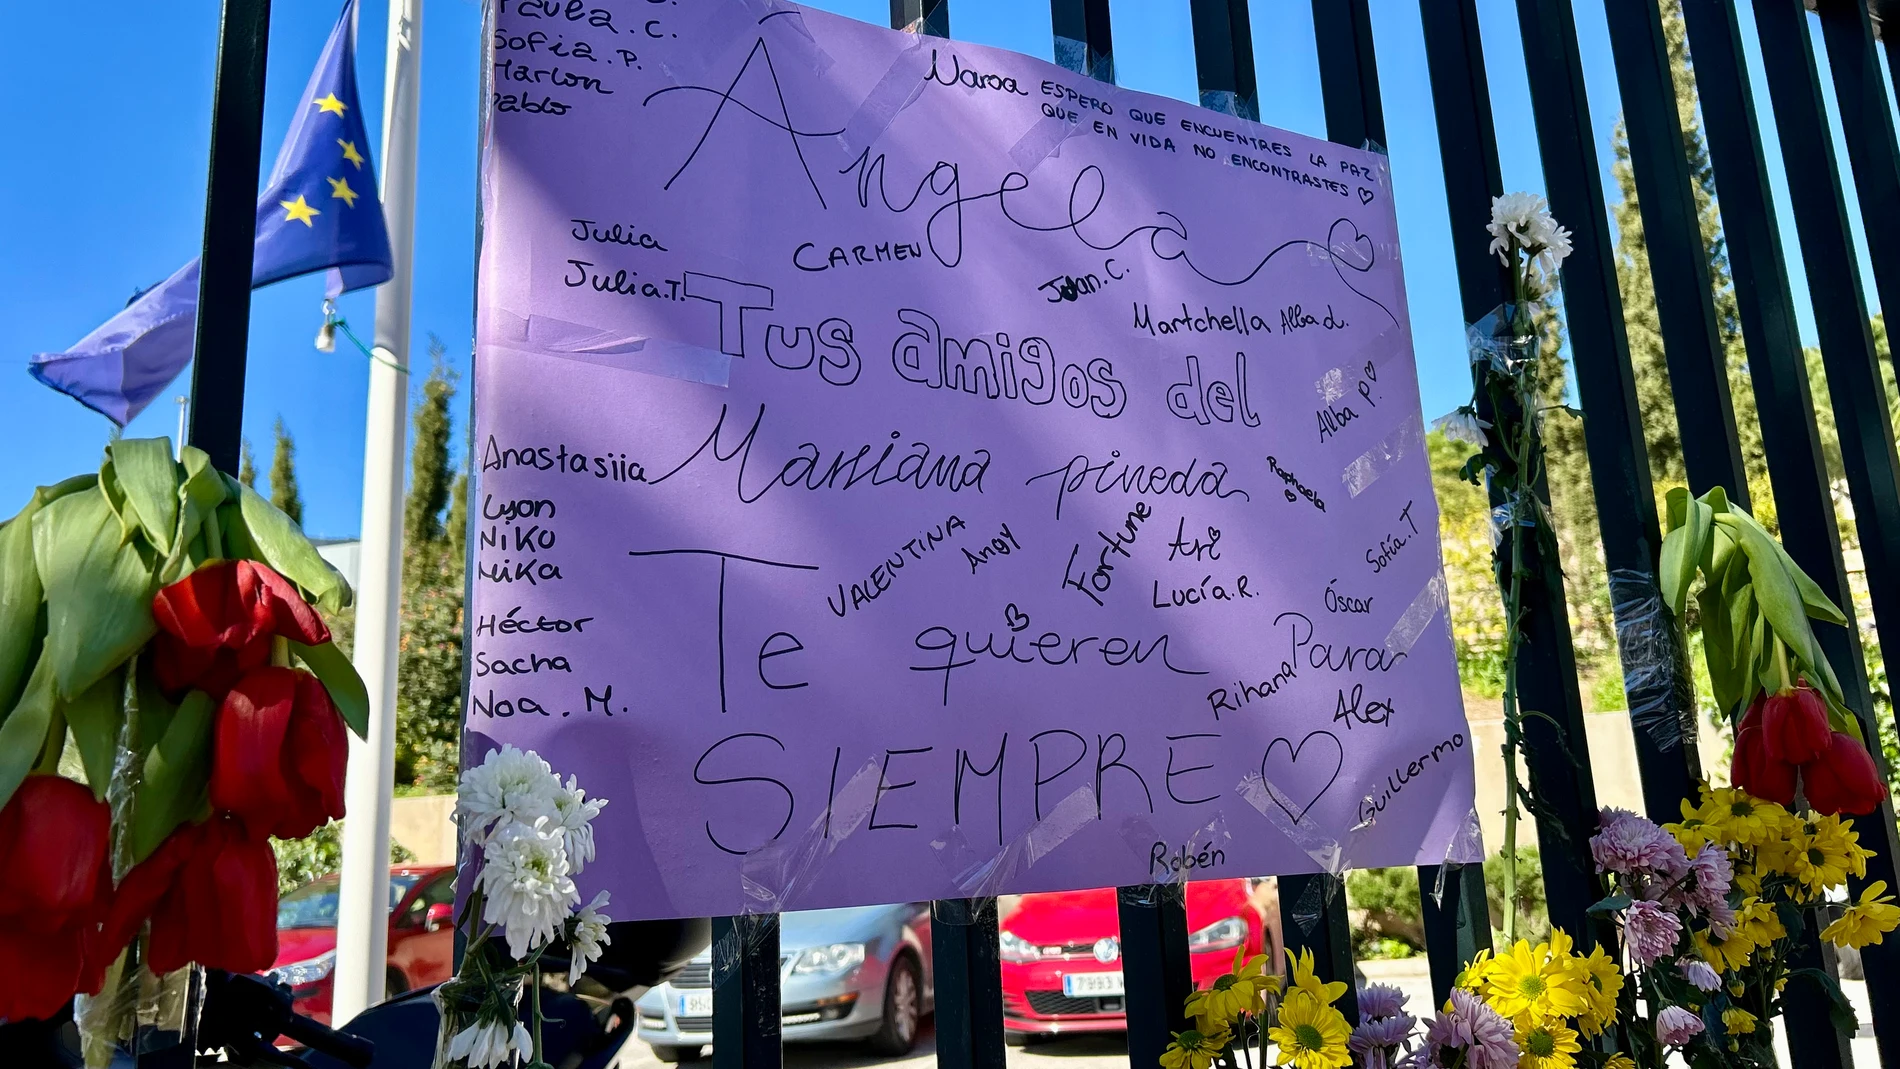 Paula. C.
Sofia. P.
Marlon
Pablo
Ángela
Naroa ESPERO QUE ENCUENTRES LA PAZ
QUE EN VIDA NO ENCONTRASTES
Julia
Julia.T.
CARMEN
Juan. C.
Martchella Alba d.
Tus amigos del
Alba P.
Mariana pineda
Raphaela
Anastasiia
Lyon
NiKo
NiKa
Héctor
Sacha
Noa. M.
VALENTINA
Angy
Fortune
Ari
Lucía.R.
Sofía.T
Óscar
Te quieren Para
Rihana
Alex
SIEMPRE
Guillermo
Robén
7993